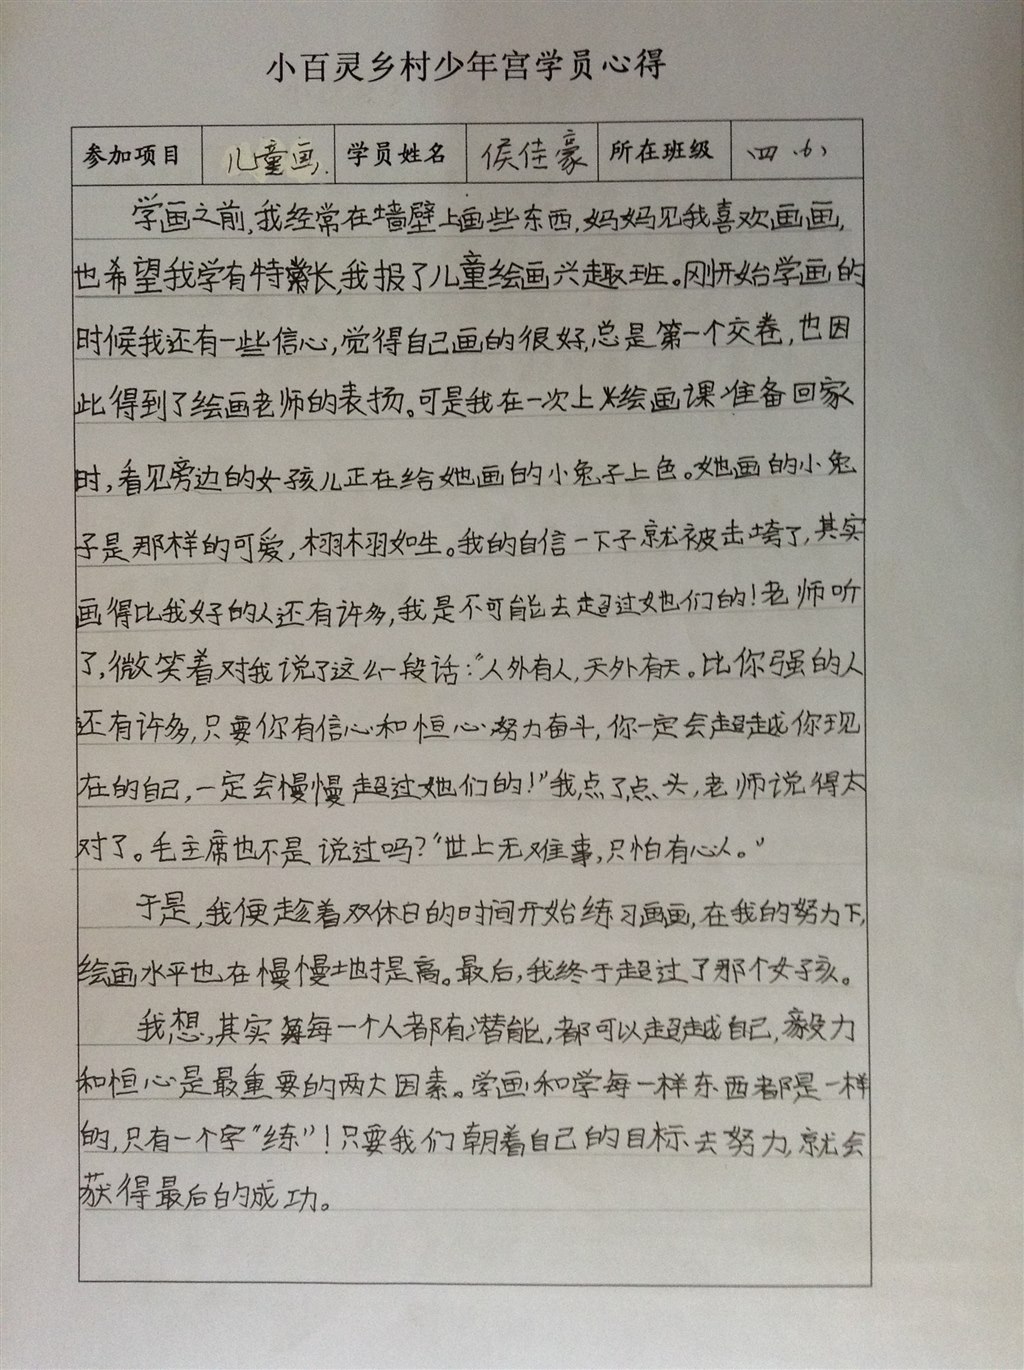 小百灵乡村少年宫学员心得
参加项目 儿童画. 学员姓名 侯佳豪 所在班级 四.6)
学画之前,我经常在墙壁上画些东西,妈妈见我喜欢画画,
也希望我学有特长,我报了儿童绘画兴趣班。刚开始学画的
时候我还有一些信心,觉得自己画的很好,总是第一个交卷,也因
此得到了绘画老师的表扬。可是我在一次上绘画课准备回家
时,看见旁边的女孩儿正在给她画的小兔子上色。她画的小兔
子是那样的可爱,栩栩如生。我的自信一下子就被击垮了,其实
画得比我好的人还有许多,我是不可能去超过她们的!老师听
了,微笑着对我说了这么一段话:"人外有人,天外有天。比你强的人
还有许多,只要你有信心和恒心努力奋斗,你一定会超越你现
在的自己,一定会慢慢超过她们的!"我点了点头,老师说得太
对了。毛主席也不是说过吗?"世上无难事,只怕有心人。"
于是,我便趁着双休日的时间开始练习画画,在我的努力下,
绘画水平也在慢慢地提高。最后,我终于超过了那个女孩。
我想,其实每一个人都有潜能,都可以超越自己,毅力
和恒心是最重要的两大因素。学画和学每一样东西都是一样
的,只有一个字"练"!只要我们朝着自己的目标去努力,就会
获得最后的成功。